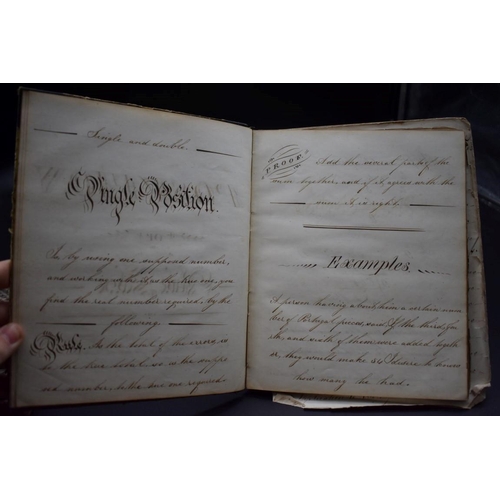 Single and double.
Single Position.
Is by using one supposed number,
and working with it as the true one, you
find the real number required, by the
following.
Rule. As the total of the errors is
to the true total, so is the suppo
sed number, to the true one required
PROOF.
Add the several parts of the
sum together, and if it agrees with the
sum it is right.
Examples
A person having about him a certain num
ber of Portugal pieces, said If the third, fou
rth, and sixth of them were added togeth
er, they would make 54 I desire to know
how many he had.